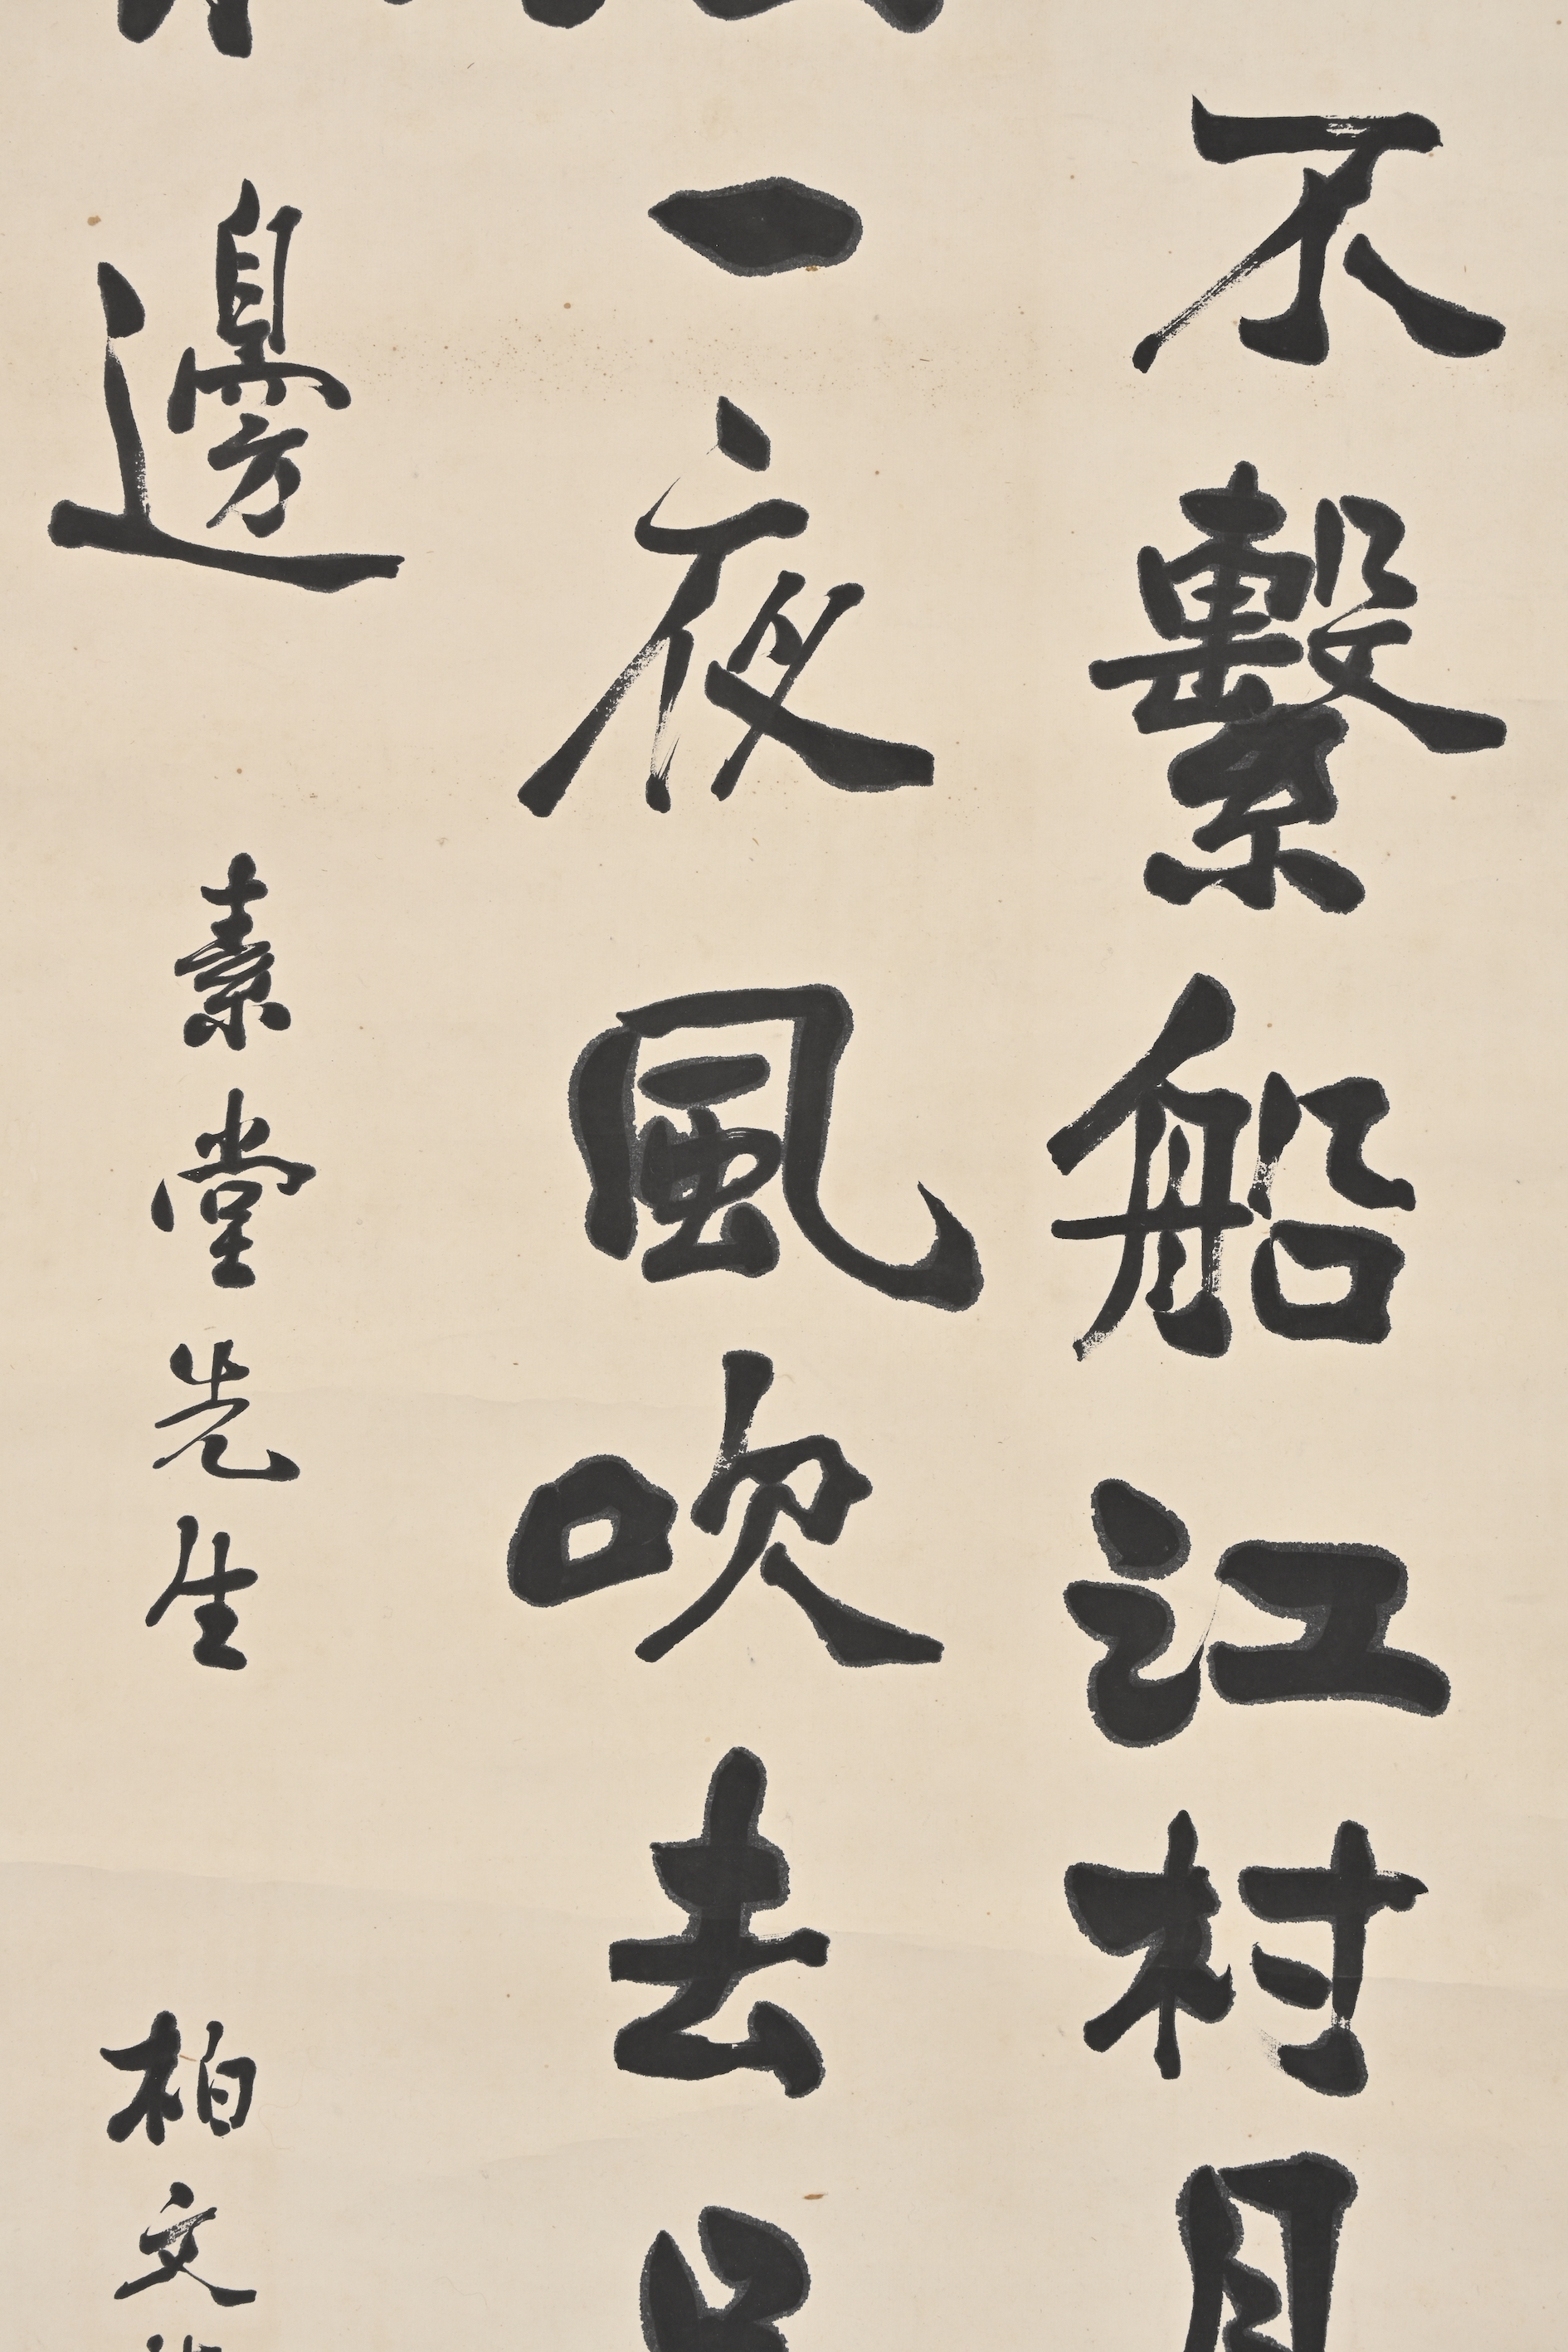 不繫船江村月
一夜風吹去
邊 素堂先生 柏文